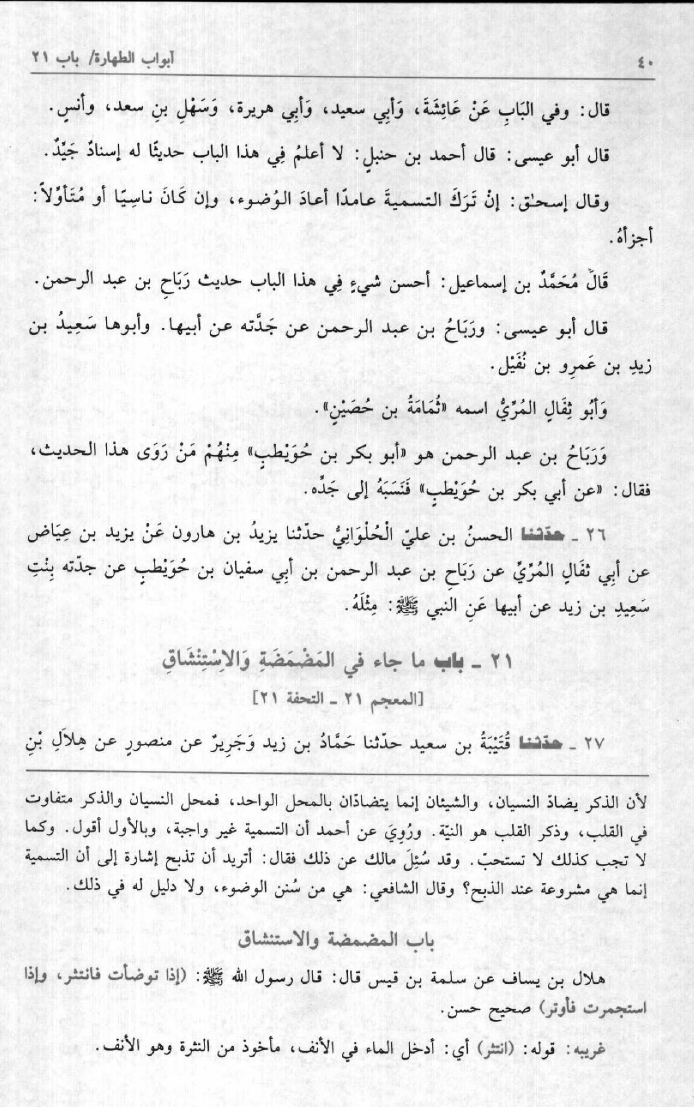 ٤٠ آبواب الطهارة/ باب ٢١
قال: وفي البَابِ عَنْ عَائِشَةَ، وَأبي سعيد، وَأبي هريرة، وَسَهْلِ بنِ سعد، وأنسٍ.
قال أبو عيسى: قال أحمد بن حنبلٍ: لا أعلمُ فِي هذا الباب حديثًا له إسنادٌ جَيِّدٌ.
وقال إسحٰق: إنْ تَرَكَ التسميةَ عامدًا أعادَ الوُضوء، وإن كَانَ ناسِيًا أو مُتَأوِّلاً:
أجزأهُ.
قَالَ مُحَمَّدٌ بن إسماعيل: أحسن شيءٍ فِي هذا الباب حديث رَبَاحِ بن عبد الرحمن.
قال أبو عيسى: ورَبَاحُ بن عبد الرحمن عن جَدَّته عن أبيها. وأبوها سَعِيدُ بن
زيدِ بن عَمرِو بن نُفَيْل.
وَأبُو ثِفَالٍ المُرِّيُّ اسمه «ثُمَامَةُ بن حُصَيْنٍ».
وَرَبَاحُ بن عبد الرحمن هو «أبو بكر بن حُوَيْطبٍ» مِنْهُمْ مَنْ رَوَى هذا الحديث،
فقال: «عن أبي بكر بن حُوَيْطبٍ» فَنَسَبَهُ إلى جَدِّه.
٢٦ ـ حدّثنا الحسنُ بن عليّ الْحُلْوَانِيُّ حدّثنا يزيدُ بن هارون عَنْ يزيد بن عِيَاض
عن أبِي ثفَالٍ المُرِّيِّ عن رَبَاحِ بن عبد الرحمن بن أبِي سفيان بن حُوَيْطبٍ عن جدّته بِنْتِ
سَعِيدِ بن زيد عن أبيها عَنِ النبي ﷺ: مِثْلَهُ.
٢١ ـ باب ما جاء في المَضْمَضَةِ وَالاِسْتِنْشَاقِ
[المعجم ٢١ ـ التحفة ٢١]
٢٧ ـ حدّثنا قُتَيْبَةُ بن سعيد حدّثنا حَمَّادُ بن زيد وَجَرِيرٌ عن منصورٍ عن هِلاَلِ بْنِ
لأن الذكر يضادّ النسيان، والشيئان إنما يتضادّان بالمحل الواحد، فمحل النسيان والذكر متفاوت
في القلب، وذكر القلب هو النيّة. ورُوِيَ عن أحمد أن التسمية غير واجبة، وبالأول أقول. وكما
لا تجب كذلك لا تستحبّ. وقد سُئِلَ مالك عن ذلك فقال: أتريد أن تذبح إشارة إلى أن التسمية
إنما هي مشروعة عند الذبح؟ وقال الشافعي: هي من سُنن الوضوء، ولا دليل له في ذلك.
باب المضمضة والاستنشاق
هلال بن يساف عن سلمة بن قيس قال: قال رسول الله ﷺ: (إذا توضأت فانتثر، وإذا
استجمرت فأوتر) صحيح حسن.
غريبه: قوله: (انتثر) أي: أدخل الماء في الأنف، مأخوذ من النثرة وهو الأنف.